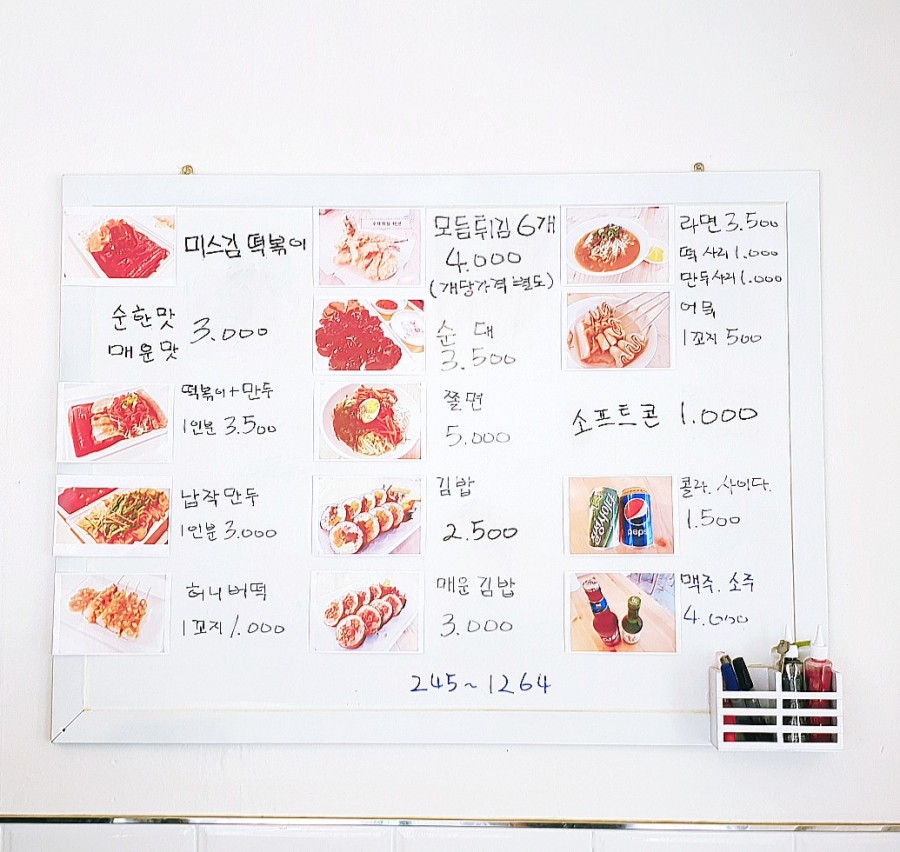 미스김 떡볶이
순한맛
매운맛
3.000
떡볶이+만두
1인분 3.500
납작만두
1인분 3.000
허니버떡
1꼬지 1.000
모듬튀김 6개
4.000
(개당가격 별도)
순대
3.500
쫄면
5.000
김밥
2.500
매운김밥
3.000
라면 3.500
떡 사리 1.000
만두사리 1.000
어묵
1꼬지 500
소프트콘 1.000
콜라. 사이다.
1.500
pepsi
맥주. 소주
4.000
245~1264